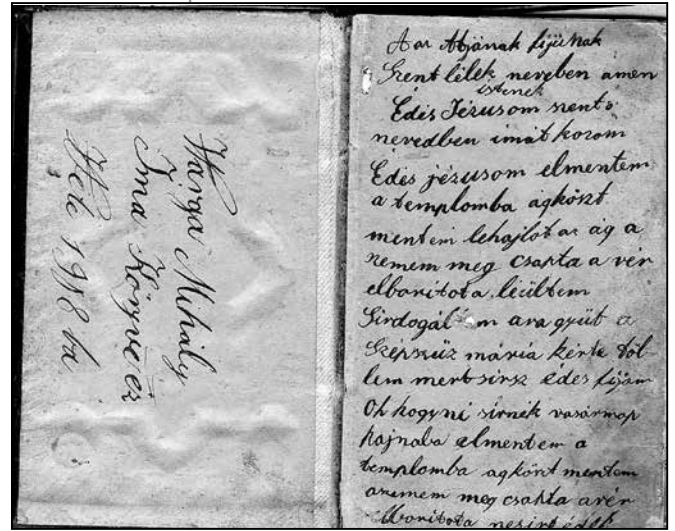 Warga Mihály
Ima Könyve ez
Kelt 1918 ba
A az Atjának fijúnak
Szent lélek nevében amen
istenek
Édes Jézusom szent
nevedben imát kozom
Édes jézusom elmentem
a templomba ágközt
mentem lehajlot az ág a
zemem meg csapta a vér
elboritota leültem
Sirdogáltam ara gyüt a
Szépszüz máriá kérte töl
lem mert sirsz édes fijam
Oh hogy ni sirnék vasárnap
hajnaba elmentem a
templomba agközt mentem
azemem meg csapta a vér
elboritota ne sirj édes